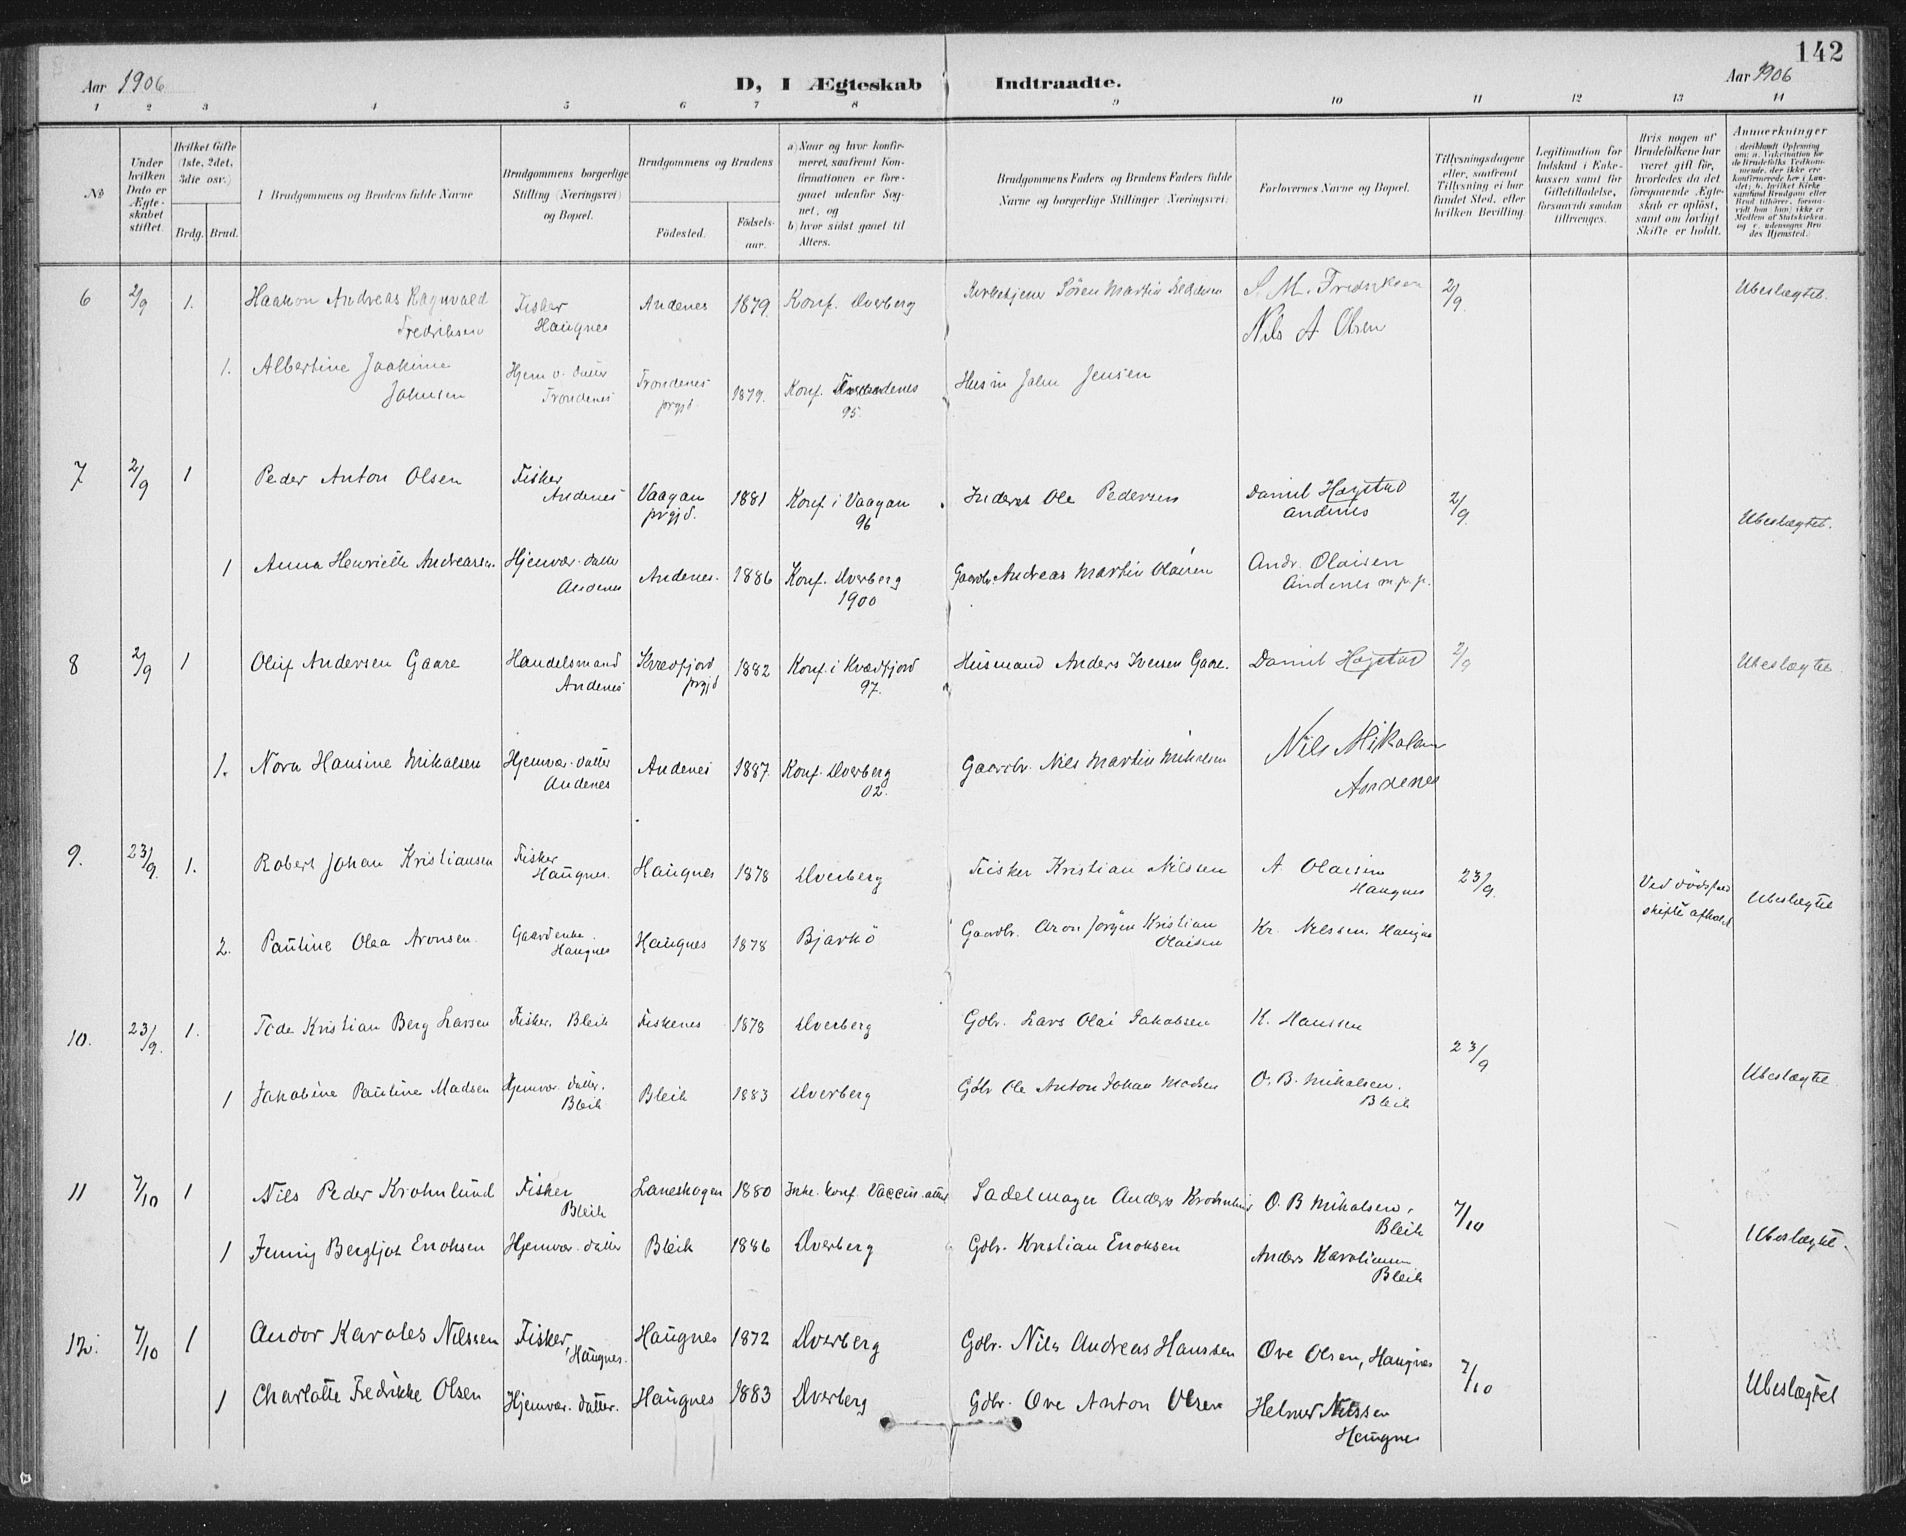 142
Aar 1906
D, I Ægteskab Indtraadte.
Aar 1906
1 2 3 4 5 6 7 8 9 10 11 12 13 14
№
Under hvilken Dato er Ægteskabet stiftet.
Hvilket Gifte (1ste, 2det, 3die osv.)
Brdg. Brud.
Brudgommens og Brudens fulde Navne
Brudgommens borgerlige Stilling (Næringsvei) og Bopæl.
Brudgommens og Brudens
Födested.
Födsels-aar.
a) Naar og hvor konfirmeret, saafremt Konfirmationen er foregaaet udenfor Sognet, og
b) hvor sidst gaaet til Alters.
Brudgommens Faders og Brudens Faders fulde Navne og borgerlige Stillinger (Næringsvei)
Forlovernes Navne og Bopæl.
Tillysningsdagene eller, saafremt Tillysning ei har fundet Sted, efter hvilken Bevilling
Legitimation for Indskud i Enkekassen samt for Giftetilladelse, forsaavidt saadan tiltrænges.
Hvis nogen af Brudefolkene har været gift för, hvorledes da det foregaaende Ægteskab er oplöst, samt om lovligt Skifte er holdt.
Anmærkninger
6 2/9 1. Haakon Andreas Ragnvald Fredriksen Fisker Haugnes Andenes 1879. Konf. Dverberg Kirketjener Sören Martin Fredriksen S. M. Fredriksen Nils A Olsen 2/9 Ubeslægtet.
1. Albertine Joakime Johnsen Hjem v. datter Trondenes Trondenes prgjd. 1879. Konf. Trondenes 95. Husm John Jensen
7 2/9 1 Peder Anton Olsen Fisker Andenes Vaagan prgjd. 1881 Konf. i Vaagan 96 Inderst Ole Pedersen Daniel Høgstad Andenes 2/9 Ubeslægtet.
1 Anna Henriette Andreassen. Hjemvær. datter Andenes Andenes. 1886 Konf. Dverberg 1900 Gaardbr. Andreas Martin Olaisen Andr. Olaisen Andenes m.p.p.
8 2/9 1 Oluf Andersen Gaare Handelsmand Andenes Kvædfjord prgjd 1882 Konf. i Kvædfjord 97. Husmand Anders Iversen Gaare. Daniel Høgstad 2/9 Ubeslægtet.
1. Nora Hansine Mikalsen Hjemvær. datter Andenes Andenes 1887. Konf. Dverberg 02. Gaardbr. Nils Martin Mikalsen Nils Mikalsen Andenes
9. 23/9. 1. Robert Johan Kristiansen Fisker Haugnes. Haugnes 1878 Dverberg Fisker Kristian Nilssen A Olaisen Haugnes 23/9. Ved dödsfald skifte afholdt Ubeslægtet
2. Pauline Olea Aronsen. Gaardenke. Haugnes Haugnes 1878 Bjarkö Gaardbr. Aron Jörgen Kristian Olaisen Kr. Nilssen Haugnes
10. 23/9. 1. Tode Kristian Berg Larsen Fisker. Bleik Fiskenes 1878 Dverberg Gdbr. Lars Olai Jakobsen K. Hanssen 23/9 Ubeslægtet.
1 Jakobine Pauline Madsen Hjemvær. datter. Bleik Bleik 1883 Dverberg Gdbr Ole Anton Johan Madsen O. B. Mikalsen. Bleik
11 7/10 1 Nils Peder Krohnlund Fisker Bleik Laneskogen 1880 Ikke. Konf. Vaccin. attest Sadelmager Anders Krohnlund O. B Mikalsen, Bleik 7/10 Ubeslægtet.
1 Jenny Bergljot Enoksen Hjemvær. datter Bleik 1886 Dverberg Gdbr. Kristian Enoksen Anders Karoliussen Bleik
12. 7/10 1 Andor Karoles Nilssen Fisker, Haugnes. Haugnes 1872 Dverberg Gdbr. Nils Andreas Hanssen Ove Olsen, Haugnes 7/10 Ubeslægtet
1 Charlotte Fredrikke Olsen Hjemvær. datter. Haugnes 1883 Dverberg Gdbr. Ove Anton Olsen Helmer Nilssen Haugnes